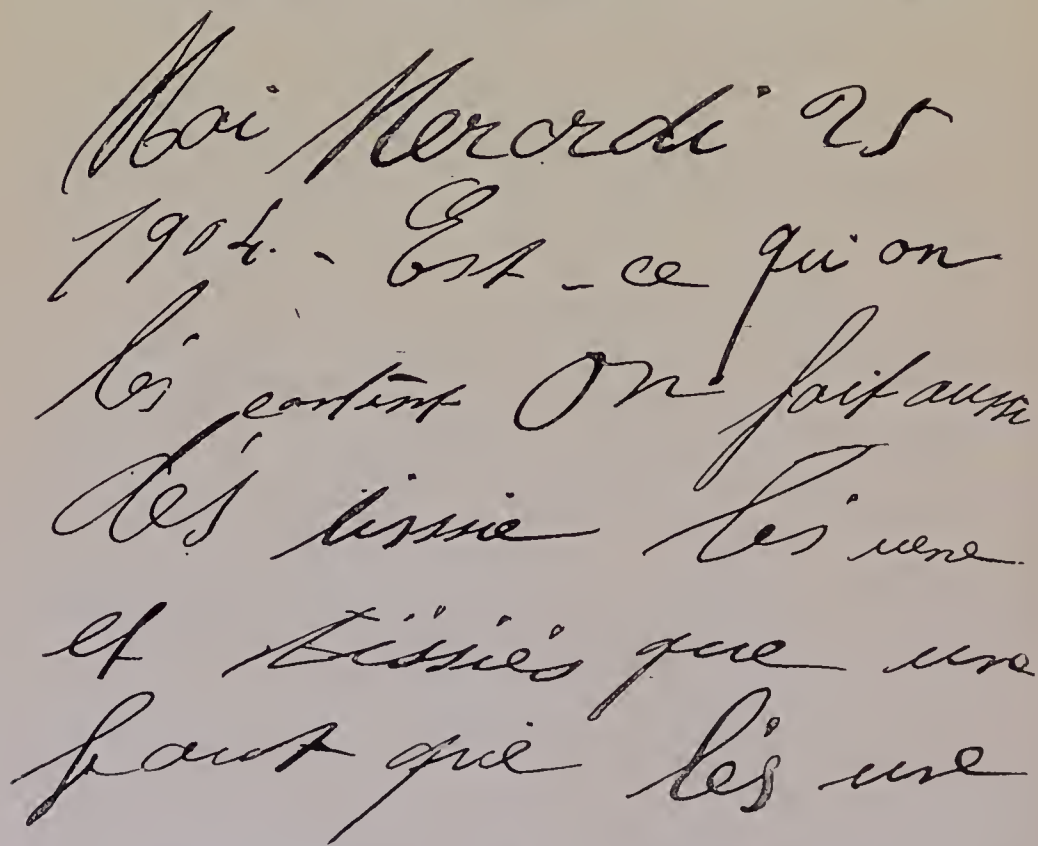 Mai Mercrdi 25
1904. - Est-ce qui on
lés On fait aussi
dés lissie lés une
et tissiés que une
faut que lés une